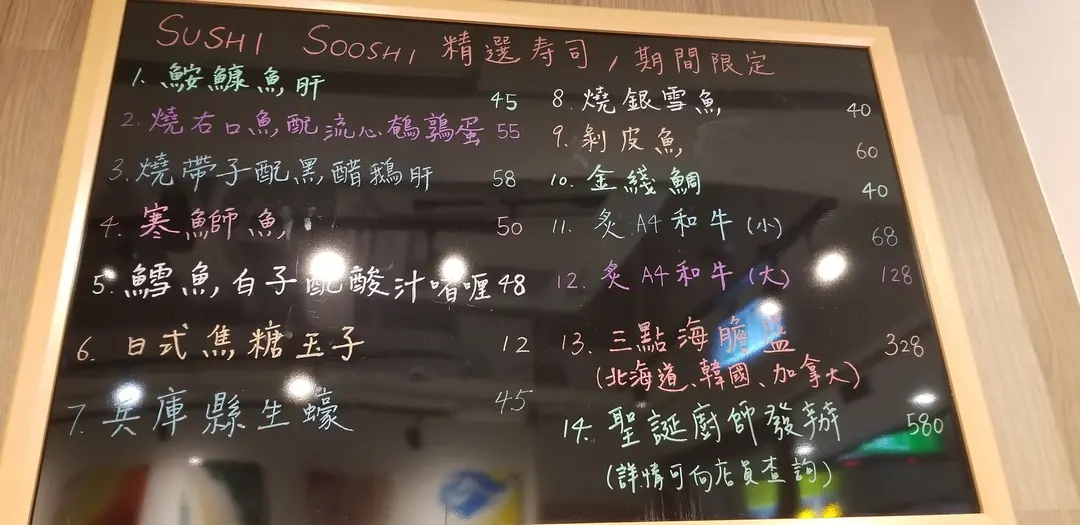 SUSHI SOOSHI 精選寿司，期間限定
1. 鮟鱇魚肝 45
2. 燒右口魚配流心鵪鶉蛋 55
3. 燒帶子配黑醋鵝肝 58
4. 寒鰤魚 50
5. 鱈魚白子配酸汁啫喱 48
6. 日式焦糖玉子 12
7. 兵庫縣生蠔 45
8. 燒銀雪魚 40
9. 剝皮魚 60
10. 金綫鯛 40
11. 炙A4和牛(小) 68
12. 炙A4和牛(大) 128
13. 三點海膽盛 328
(北海道、韓國、加拿大)
14. 聖誕廚師發辦 580
(詳情可向店員查詢)